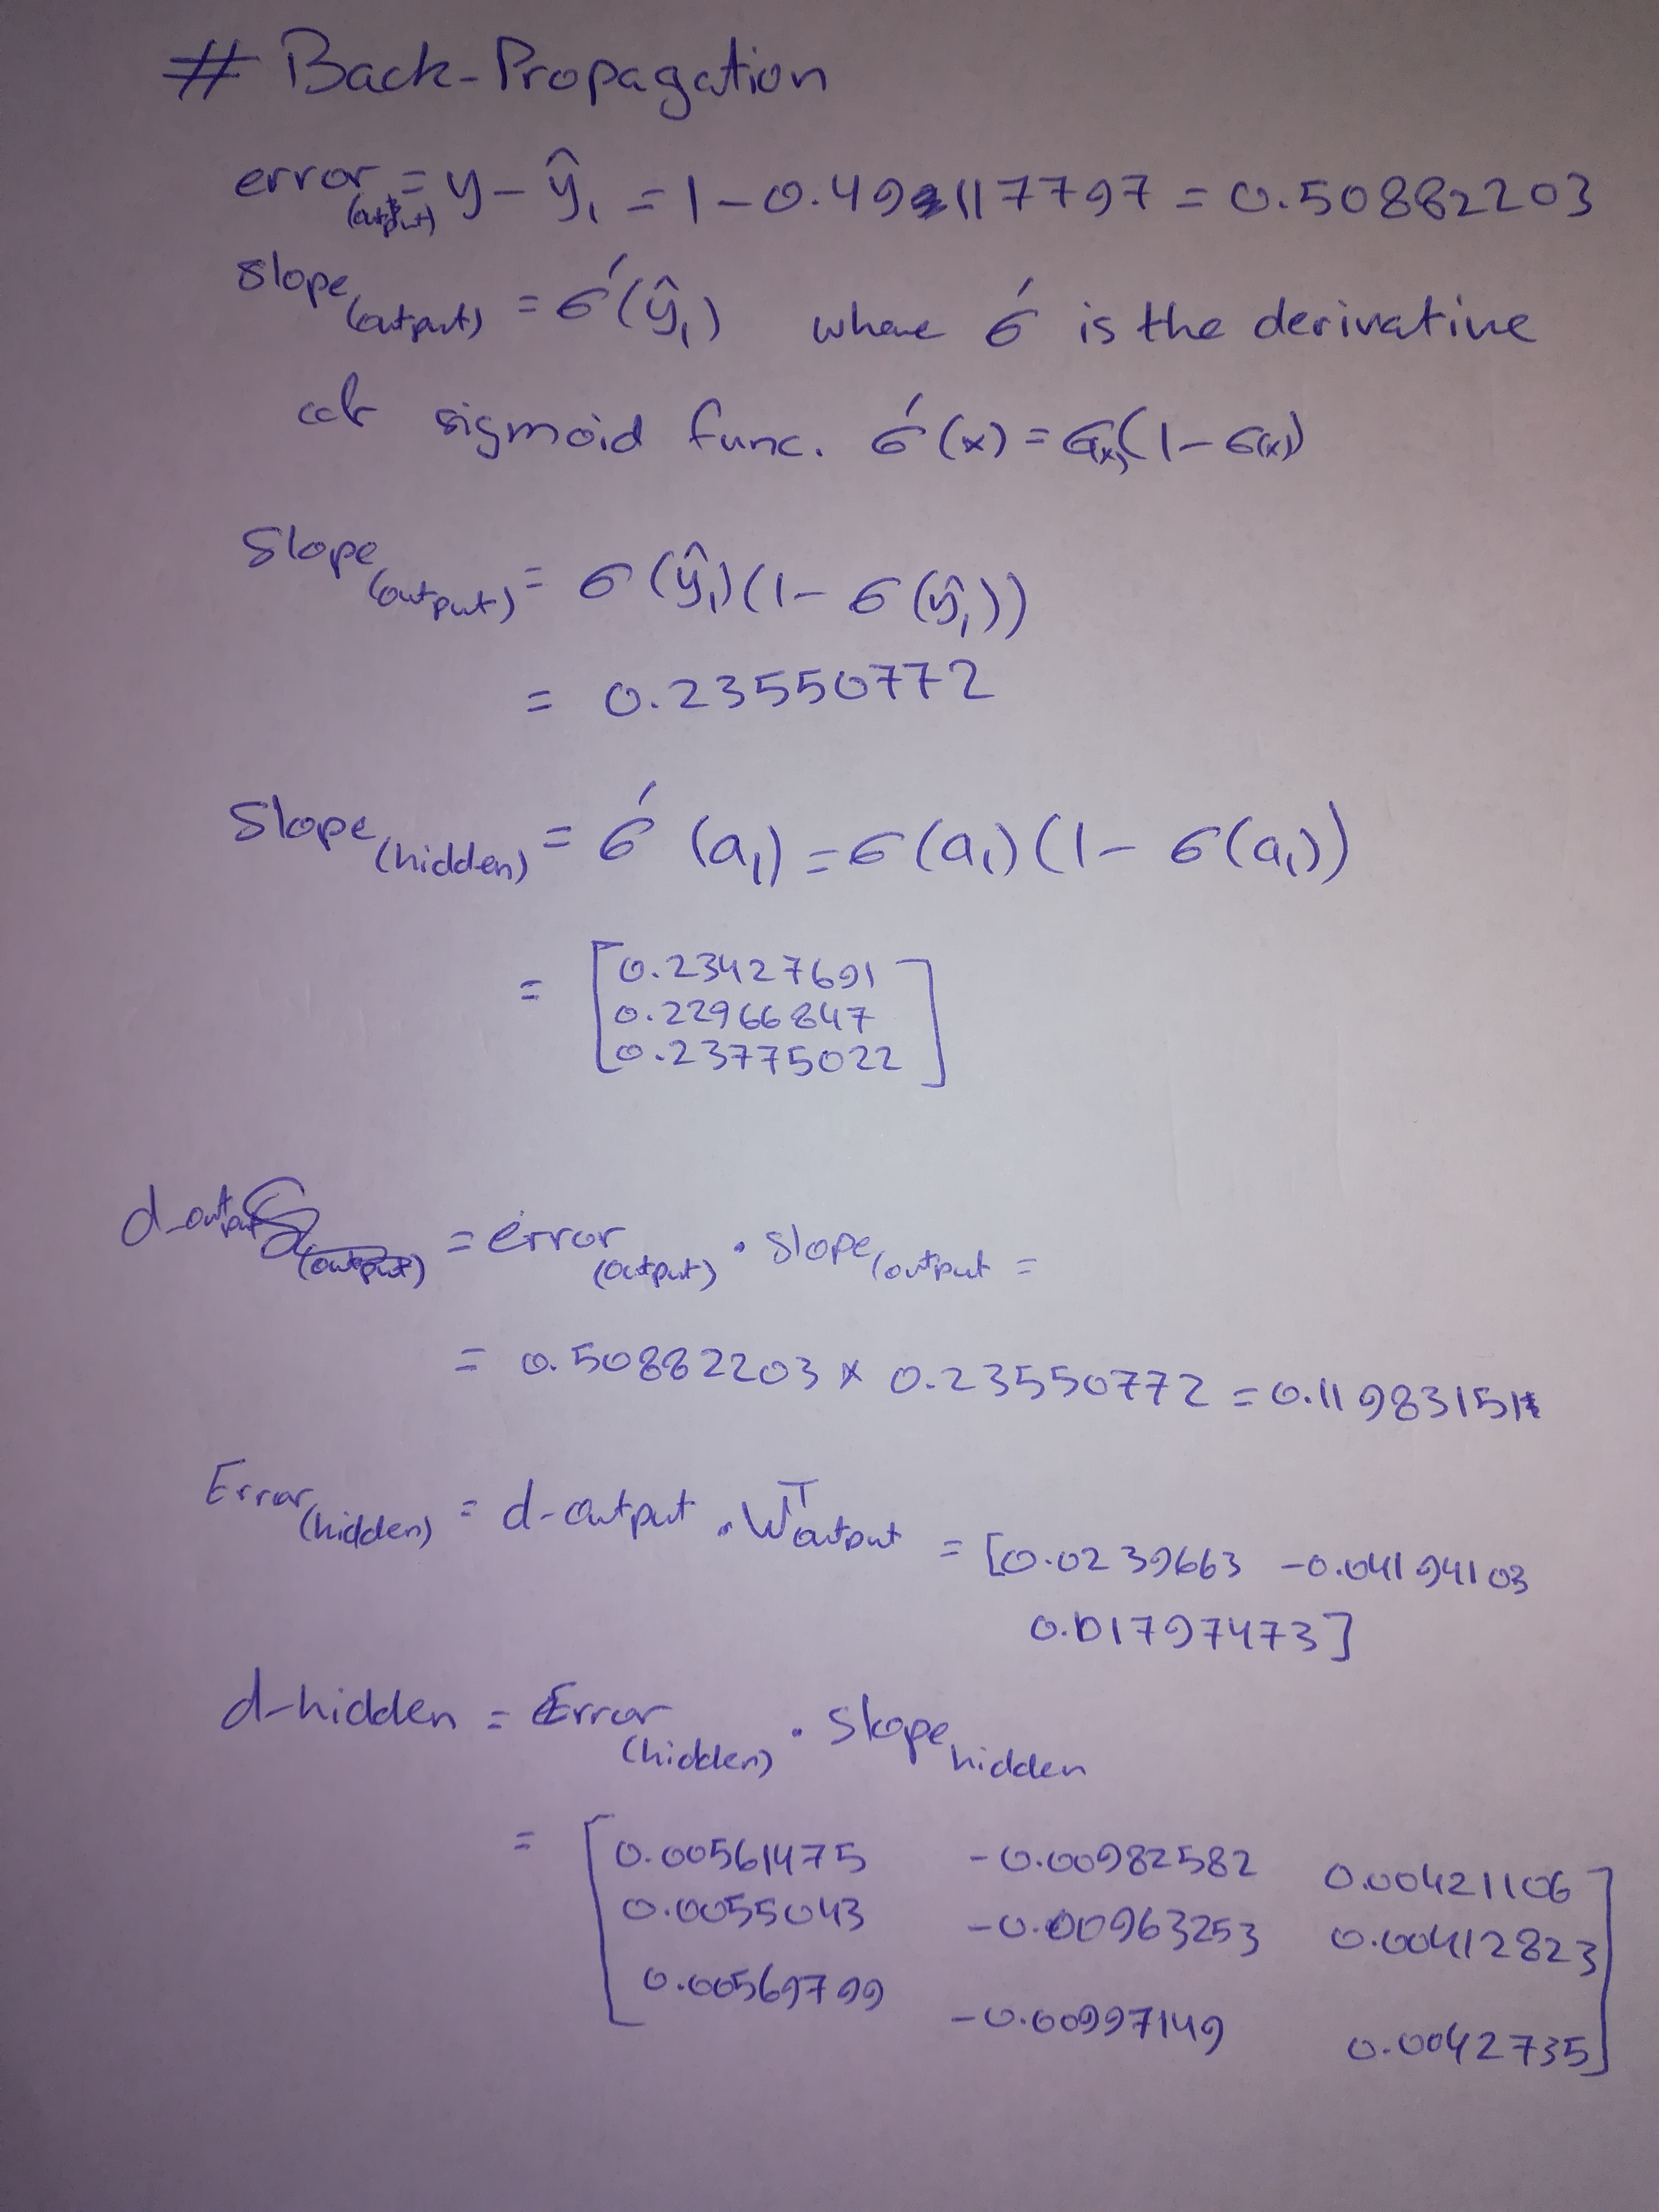 # Back-Propagation
error(output) = y - ŷ₁ = 1 - 0.49117797 = 0.50882203
Slope(output) = σ́(ŷ₁) where σ́ is the derivative
sigmoid func. σ́(x) = σ(x)(1-σ(x))
Slope(output) = σ(ŷ₁)(1-σ(ŷ₁))
= 0.23550772
Slope(hidden) = σ́(a₁) = σ(a₁)(1-σ(a₁))
= [0.23427691
0.22966847
0.23775022]
d-output = error(output) · slope(output =
= 0.50882203 x 0.23550772 = 0.11983151
Error(hidden) = d-output · Wᵀoutput = [0.0239663 -0.04194103
0.01797473]
d-hidden = Error(hidden) · Slope hidden
= [0.00561475 -0.00982582 0.00421106
0.0055043 -0.00963253 0.00412823
0.00569799 -0.00997149 0.0042735]